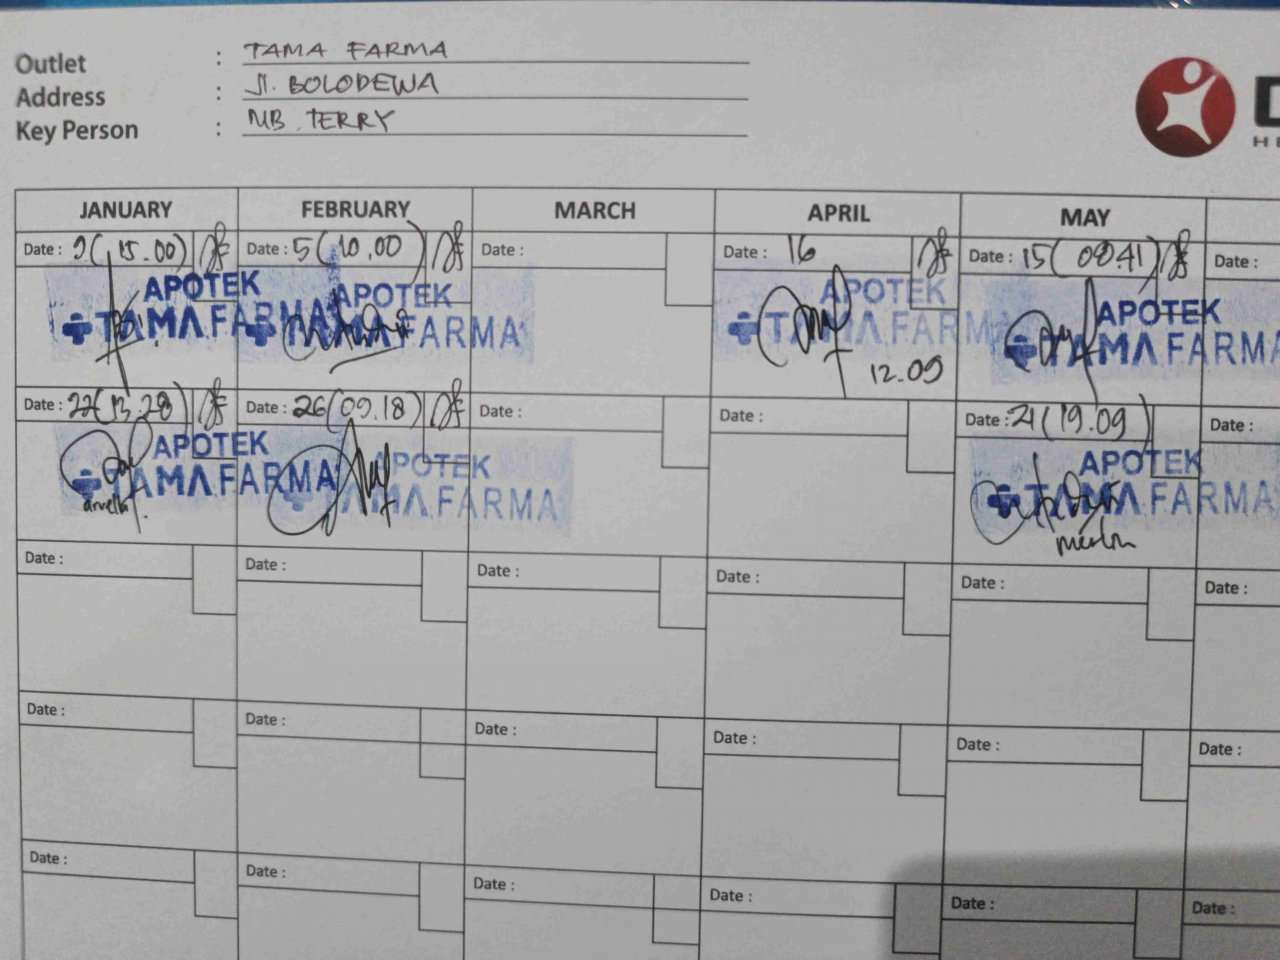 Outlet : TAMA FARMA
Address : Jl. BOLODEWA
Key Person : MB. TERRY
JANUARY FEBRUARY MARCH APRIL MAY
Date : 9 (15.00) Date : 5 (10.00) Date : Date : 16 Date : 15 (08.41) Date :
APOTEK APOTEK APOTEK APOTEK
TAMA FARMA TAMA FARMA TAMA FARMA TAMA FARMA
12.09
Date : 22 (13.28) Date : 26 (09.18) Date : Date : Date : 21 (19.09) Date :
APOTEK APOTEK APOTEK
TAMA FARMA TAMA FARMA TAMA FARMA
merlin
Date : Date : Date : Date : Date : Date :
Date : Date : Date : Date : Date : Date :
Date : Date : Date : Date : Date : Date :